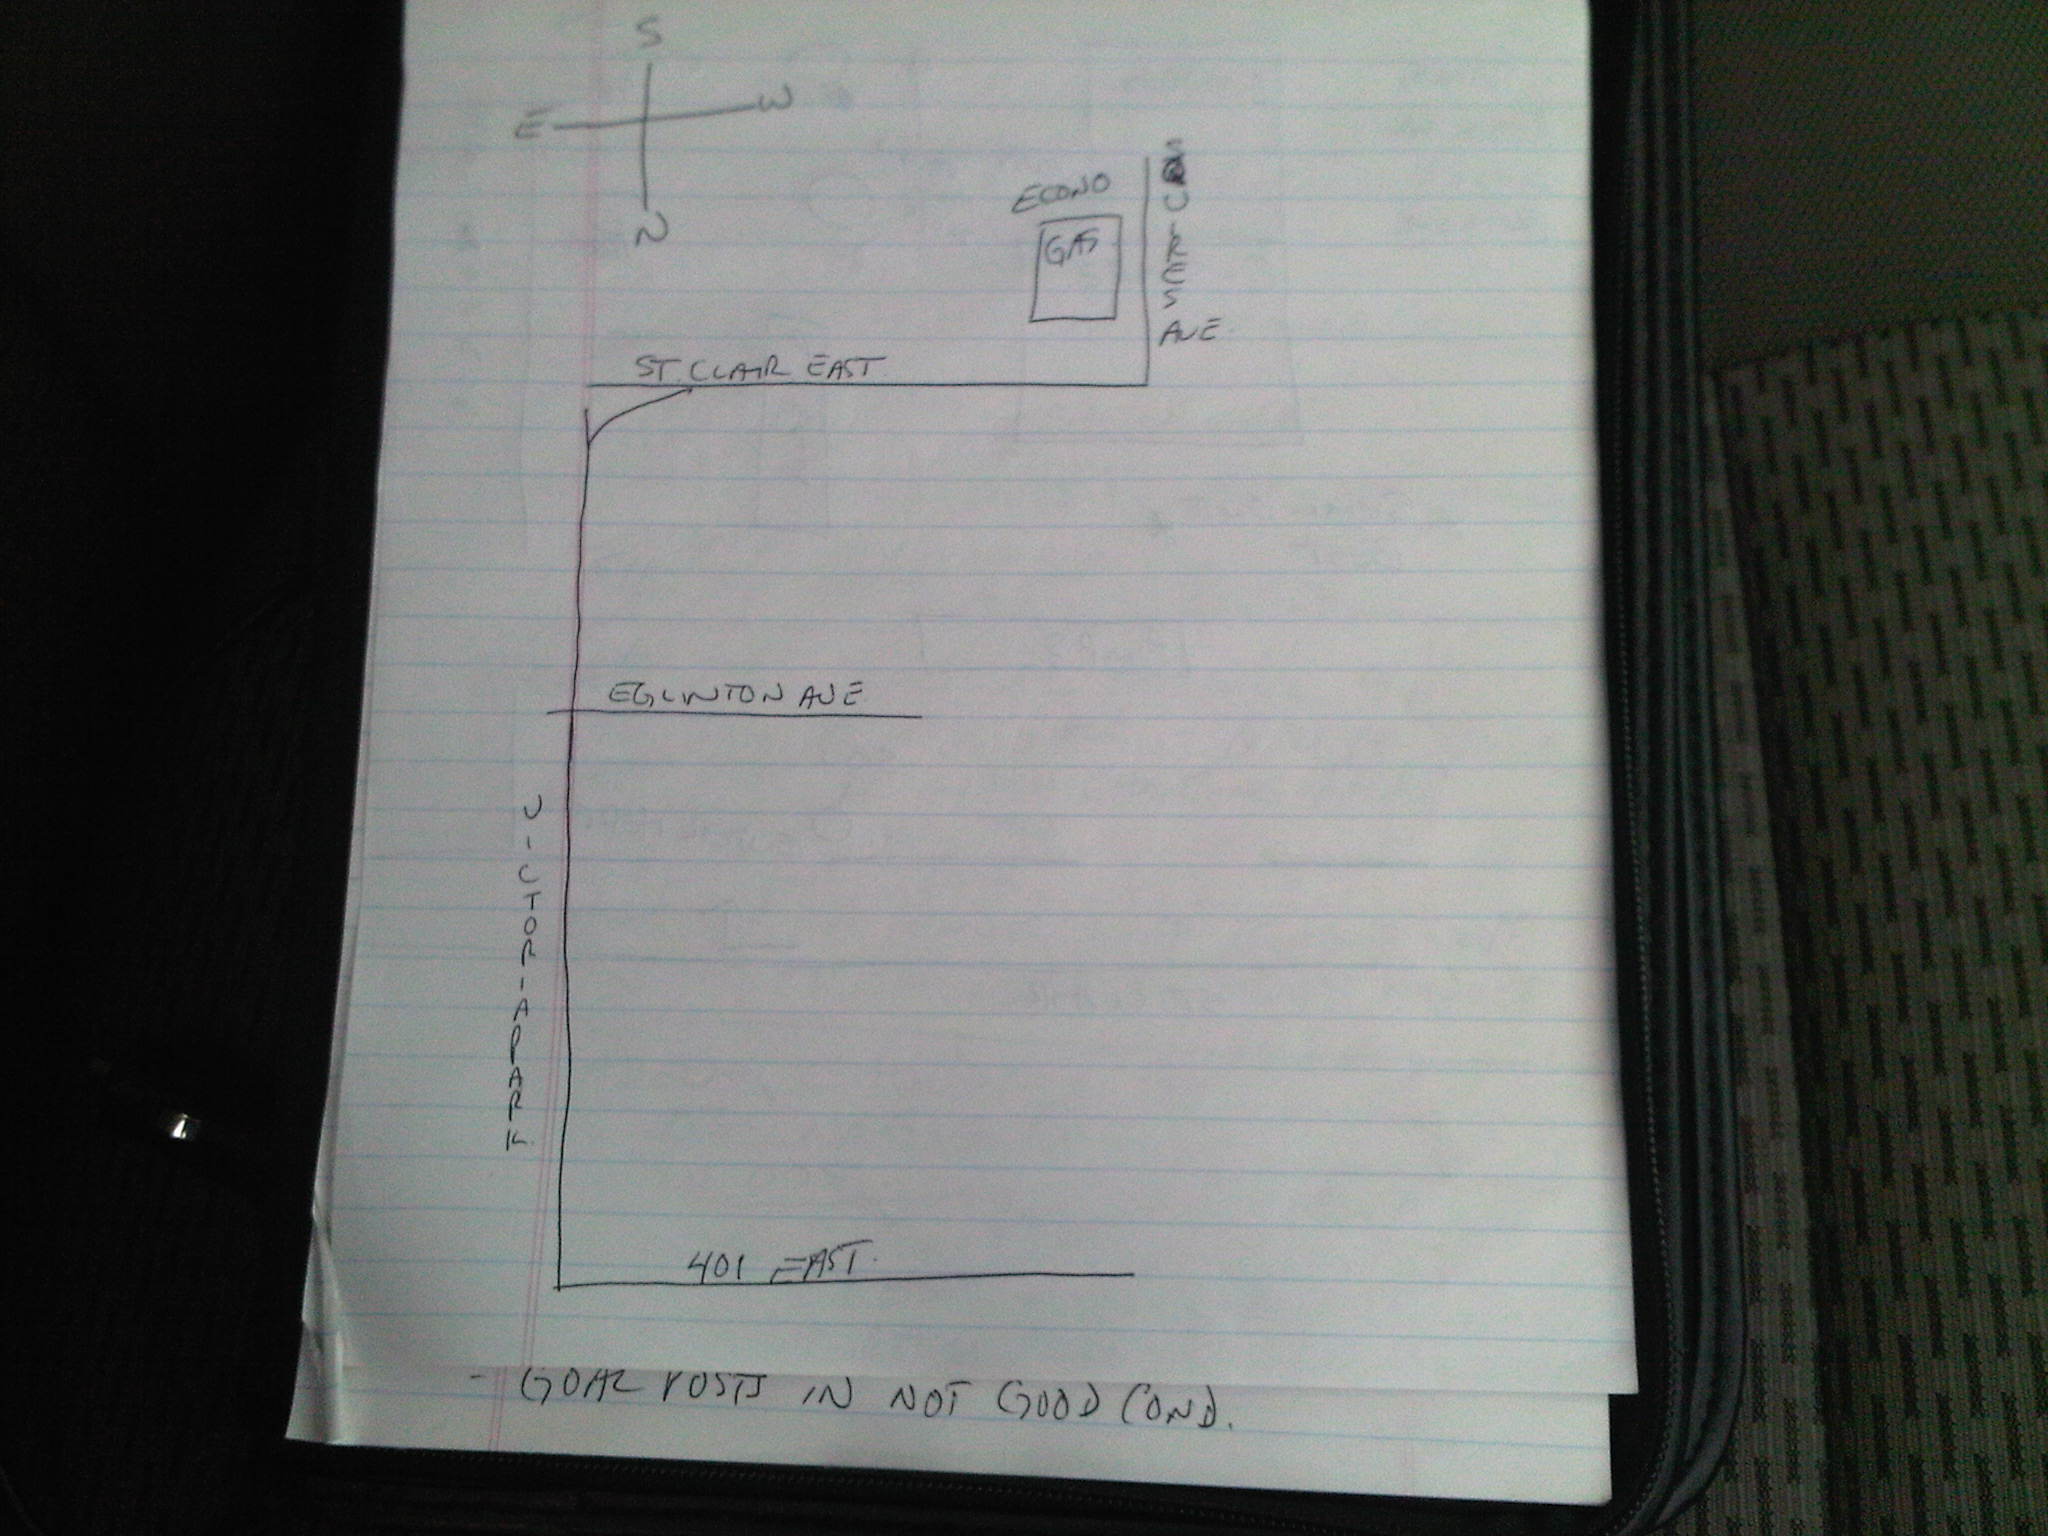 S
E W
N
ECONO
GAS
AVE.
ST. CLAIR EAST.
EGLINTON AVE.
VICTORIA PARK.
401 EAST.
- GOAL POSTS IN NOT GOOD COND.